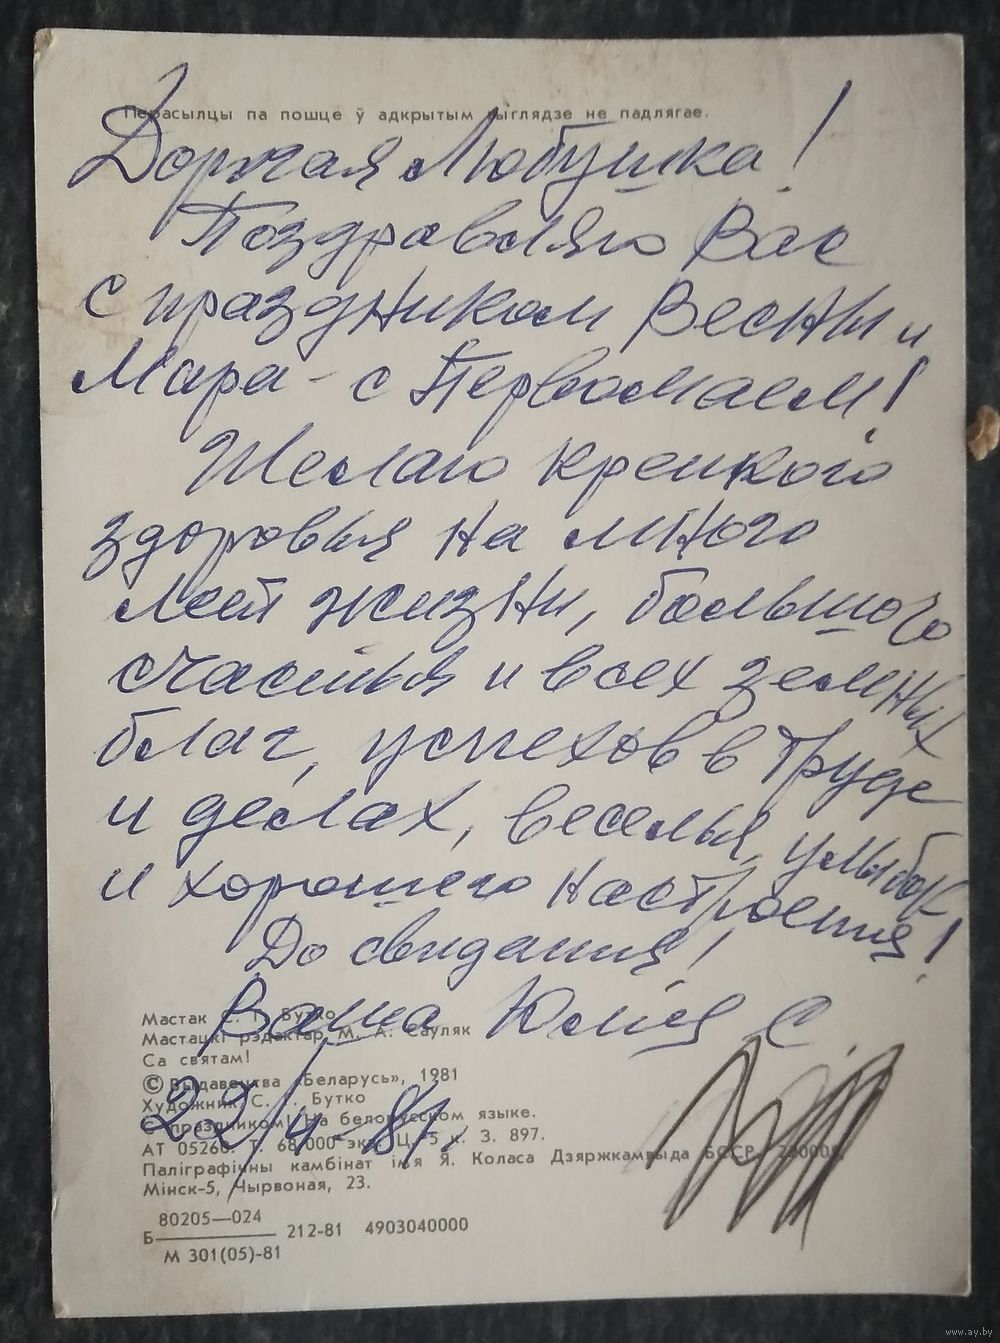 Перасылцы па пошце ў адкрытым выглядзе не падлягае.
Дорогая Любушка!
Поздравляю Вас
с праздником Весны и
Мира - с Первомаем!
Желаю крепкого
здоровья на много
лет жизни, большого
счастья и всех земных
благ, успехов в труде
и делах, веселья, улыбок
и хорошего настроения!
До свидания!
Ваша Юлия С
Мастак С. Г. Бутко
Мастацкі рэдактар М. А. Сауляк
Са святам!
© Выдавецтва «Беларусь», 1981
Художник С. Бутко
С праздником! На белорусском языке.
22/4-81г.
АТ 05260. Т. 68 000 экз. Ц. 5 к. З. 897.
Паліграфічны камбінат імя Я. Коласа Дзяржкамвыда БССР,
Мінск-5, Чырвоная, 23.
Б 80205—024
М 301(05)-81 212-81 4903040000
www.ay.by